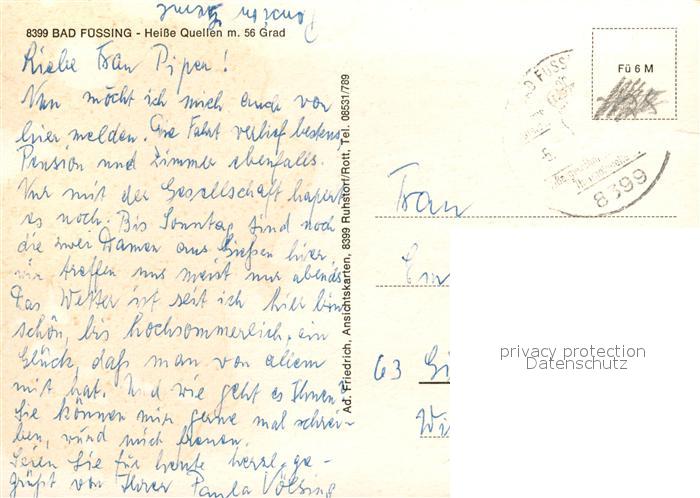 Pension Heinz
8399 BAD FÜSSING - Heiße Quellen m. 56 Grad
Liebe Frau Piper!
Nun möcht ich mich auch von
hier melden. Die Fahrt verlief bestens,
Pension und Zimmer ebenfalls.
Nur mit der Gesellschaft hapert
es noch. Bis Sonntag sind noch
die zwei Damen aus Gießen hier,
wir treffen uns meist nur abends.
Das Wetter ist seit ich hier bin
schön, bis hochsommerlich, ein
Glück, daß man von allem
mit hat. Und wie geht es Ihnen?
Sie können mir gerne mal schrei-
ben, würd mich freuen.
Seien Sie für heute herzl. ge-
grüßt von Ihrer Paula Völsing
Ad. Friedrich, Ansichtskarten, 8399 Ruhstorf/Rott, Tel. 08531/789
Fü 6 M
BAD FÜSSING
8399
Frau
63 Gi
privacy protection
Datenschutz